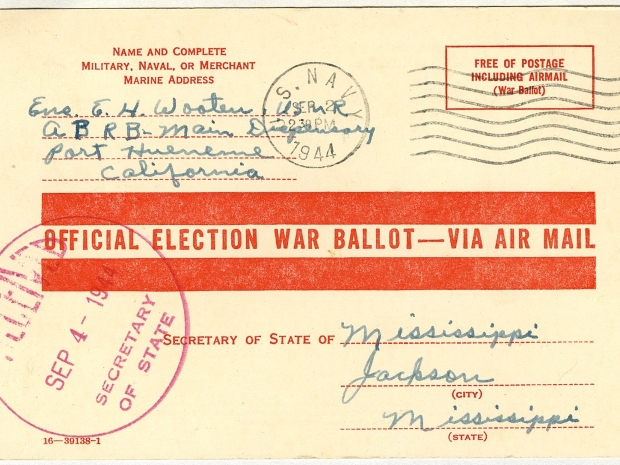 NAME AND COMPLETE
MILITARY, NAVAL, OR MERCHANT
MARINE ADDRESS
Ens. E. H. Wooten, USNR
A B R B - Main Dispensary
Port Hueneme
California
U.S. NAVY
SEP 2
230PM
1944
FREE OF POSTAGE
INCLUDING AIRMAIL
(War Ballot)
OFFICIAL ELECTION WAR BALLOT—VIA AIR MAIL
RECEIVED
SEP 4 - 1944
SECRETARY
OF STATE
SECRETARY OF STATE OF Mississippi
Jackson
(CITY)
Mississippi
(STATE)
16—39138-1